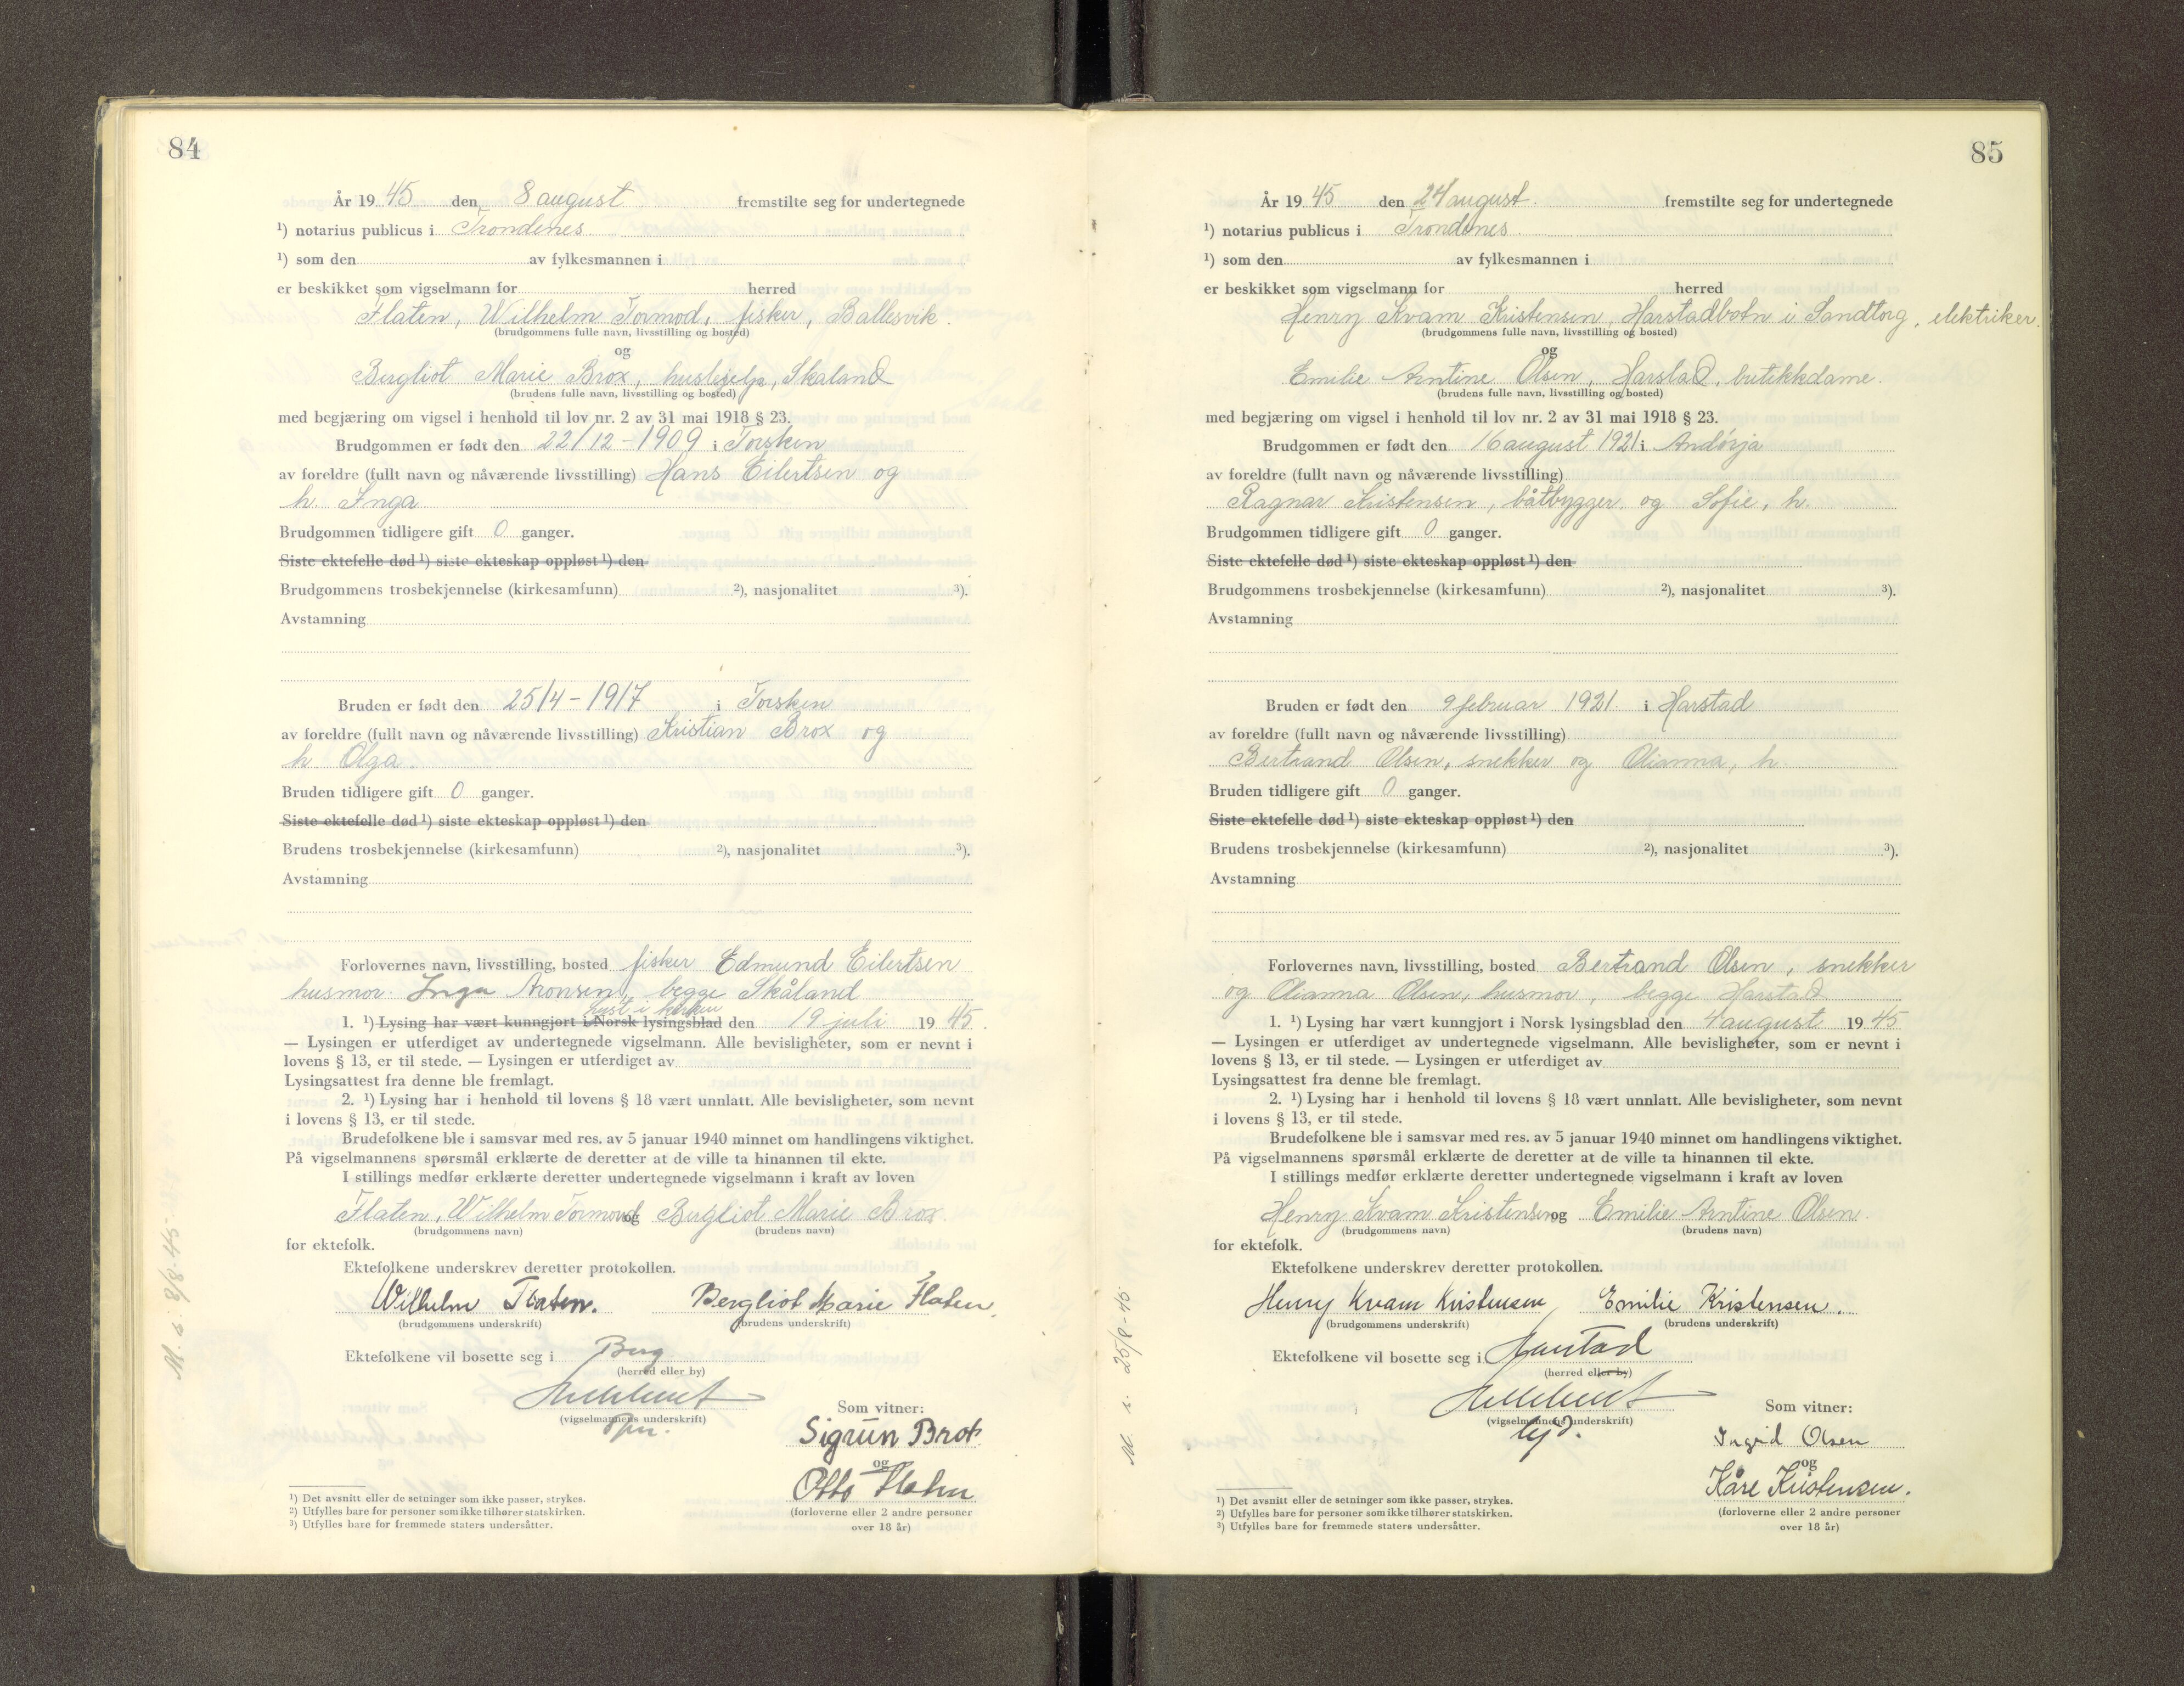 84
År 1945 den 8 august fremstilte seg for undertegnede
¹) notarius publicus i Trondenes
¹) som den av fylkesmannen i
er beskikket som vigselmann for herred
Flaten, Wilhelm Tormod, fisker, Ballesvik.
(brudgommens fulle navn, livsstilling og bosted)
og
Bergliot Marie Brox, hushjelp, Skaland
(brudens fulle navn, livsstilling og bosted)
med begjæring om vigsel i henhold til lov nr. 2 av 31 mai 1918 § 23.
Brudgommen er født den 22/12-1909 i Torsken
av foreldre (fullt navn og nåværende livsstilling) Hans Eilertsen og
h. Inga
Brudgommen tidligere gift 0 ganger.
Siste ektefelle død ¹) siste ekteskap oppløst ¹) den
Brudgommens trosbekjennelse (kirkesamfunn) ²), nasjonalitet ³).
Avstamning
Bruden er født den 25/4-1917 i Torsken
av foreldre (fullt navn og nåværende livsstilling) Kristian Brox og
h. Olga
Bruden tidligere gift 0 ganger.
Siste ektefelle død ¹) siste ekteskap oppløst ¹) den
Brudens trosbekjennelse (kirkesamfunn) ²), nasjonalitet ³).
Avstamning
Forlovernes navn, livsstilling, bosted fisker Edmund Eilertsen
husmor Inga Aronsen, begge Skåland
lyst i kirken
1. ¹) Lysing har vært kunngjort i Norsk lysingsblad den 19 juli 1945.
— Lysingen er utferdiget av undertegnede vigselmann. Alle bevisligheter, som er nevnt i
lovens § 13, er til stede. — Lysingen er utferdiget av
Lysingsattest fra denne ble fremlagt.
2. ¹) Lysing har i henhold til lovens § 18 vært unnlatt. Alle bevisligheter, som nevnt
i lovens § 13, er til stede.
Brudefolkene ble i samsvar med res. av 5 januar 1940 minnet om handlingens viktighet.
På vigselmannens spørsmål erklærte de deretter at de ville ta hinannen til ekte.
I stillings medfør erklærte deretter undertegnede vigselmann i kraft av loven
Flaten, Wilhelm Tormod og Bergliot Marie Brox
(brudgommens navn) (brudens navn)
for ektefolk.
Ektefolkene underskrev deretter protokollen.
Wilhelm Flaten. Bergliot Marie Flaten.
(brudgommens underskrift) (brudens underskrift)
Ektefolkene vil bosette seg i Berg
(herred eller by)
(vigselmannens underskrift)
Som vitner:
Sigrun Brox
og
Otto Flaten
(forloverne eller 2 andre personer
over 18 år)
¹) Det avsnitt eller de setninger som ikke passer, strykes.
²) Utfylles bare for personer som ikke tilhører statskirken.
³) Utfylles bare for fremmede staters undersåtter.
M. s. 9/8-45
85
År 1945 den 24 august. fremstilte seg for undertegnede
¹) notarius publicus i Trondenes.
¹) som den av fylkesmannen i
er beskikket som vigselmann for herred
Henry Kvam Kristensen, Harstadbotn i Sandtorg, elektriker.
(brudgommens fulle navn, livsstilling og bosted)
og
Emilie Arntine Olsen, Harstad, butikkdame.
(brudens fulle navn, livsstilling og bosted)
med begjæring om vigsel i henhold til lov nr. 2 av 31 mai 1918 § 23.
Brudgommen er født den 16 august 1921 i Andørja
av foreldre (fullt navn og nåværende livsstilling)
Ragnar Kristensen, båtbygger, og Sofie, h.
Brudgommen tidligere gift 0 ganger.
Siste ektefelle død ¹) siste ekteskap oppløst ¹) den
Brudgommens trosbekjennelse (kirkesamfunn) ²), nasjonalitet ³).
Avstamning
Bruden er født den 9 februar 1921 i Harstad
av foreldre (fullt navn og nåværende livsstilling)
Bertrand Olsen, snekker og Olianna, h.
Bruden tidligere gift 0 ganger.
Siste ektefelle død ¹) siste ekteskap oppløst ¹) den
Brudens trosbekjennelse (kirkesamfunn) ²), nasjonalitet ³).
Avstamning
Forlovernes navn, livsstilling, bosted Bertrand Olsen, snekker
og Olianna Olsen, husmor, begge Harstad
1. ¹) Lysing har vært kunngjort i Norsk lysingsblad den 4 august 1945
— Lysingen er utferdiget av undertegnede vigselmann. Alle bevisligheter, som er nevnt i
lovens § 13, er til stede. — Lysingen er utferdiget av
Lysingsattest fra denne ble fremlagt.
2. ¹) Lysing har i henhold til lovens § 18 vært unnlatt. Alle bevisligheter, som nevnt
i lovens § 13, er til stede.
Brudefolkene ble i samsvar med res. av 5 januar 1940 minnet om handlingens viktighet.
På vigselmannens spørsmål erklærte de deretter at de ville ta hinannen til ekte.
I stillings medfør erklærte deretter undertegnede vigselmann i kraft av loven
Henry Kvam Kristensen og Emilie Arntine Olsen.
(brudgommens navn) (brudens navn)
for ektefolk.
Ektefolkene underskrev deretter protokollen.
Henry Kvam Kristensen, Emilie Kristensen.
(brudgommens underskrift) (brudens underskrift)
Ektefolkene vil bosette seg i Harstad
(herred eller by)
(vigselmannens underskrift)
Som vitner:
Ingrid Olsen
og
Kåre Kristensen.
(forloverne eller 2 andre personer
over 18 år)
¹) Det avsnitt eller de setninger som ikke passer, strykes.
²) Utfylles bare for personer som ikke tilhører statskirken.
³) Utfylles bare for fremmede staters undersåtter.
M. s. 25/8-45